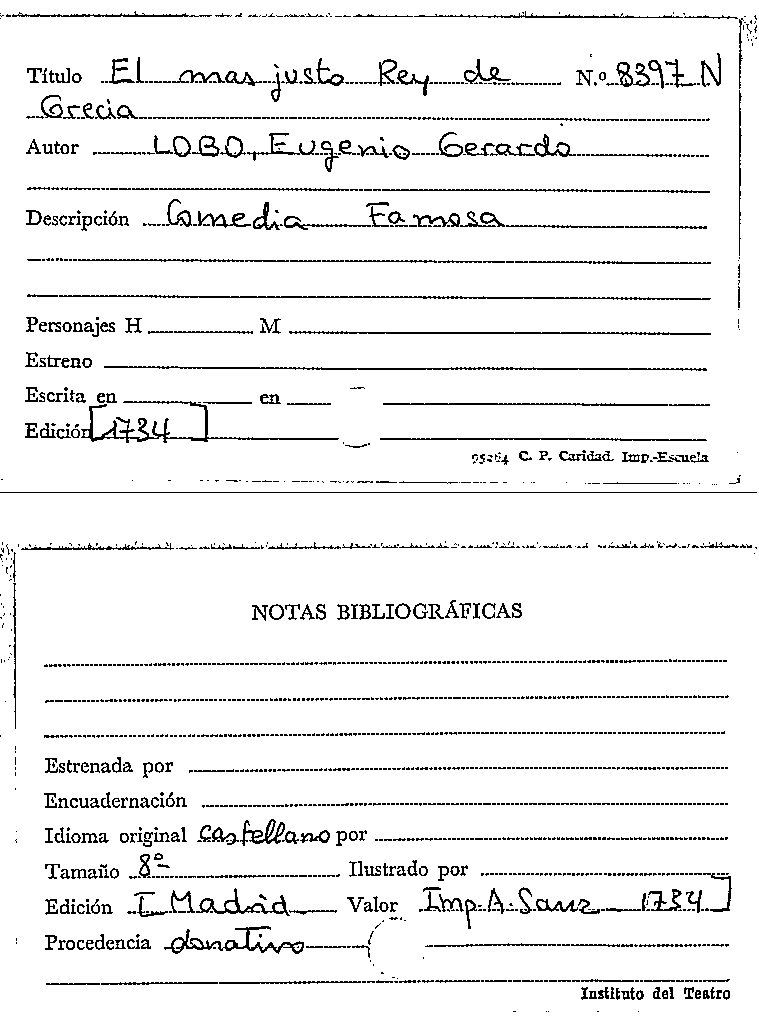 Título El mas justo Rey de N.º 8397 N
Grecia
Autor LOBO, Eugenio Gerardo
Descripción Comedia Famosa
Personajes H M
Estreno
Escrita en en
Edición [1734]
95264 C. P. Caridad. Imp.-Escuela
NOTAS BIBLIOGRÁFICAS
Estrenada por
Encuadernación
Idioma original castellano por
Tamaño 8º Ilustrado por
Edición [Madrid Valor Imp. A. Sanz 1734]
Procedencia donativo
Instituto del Teatro